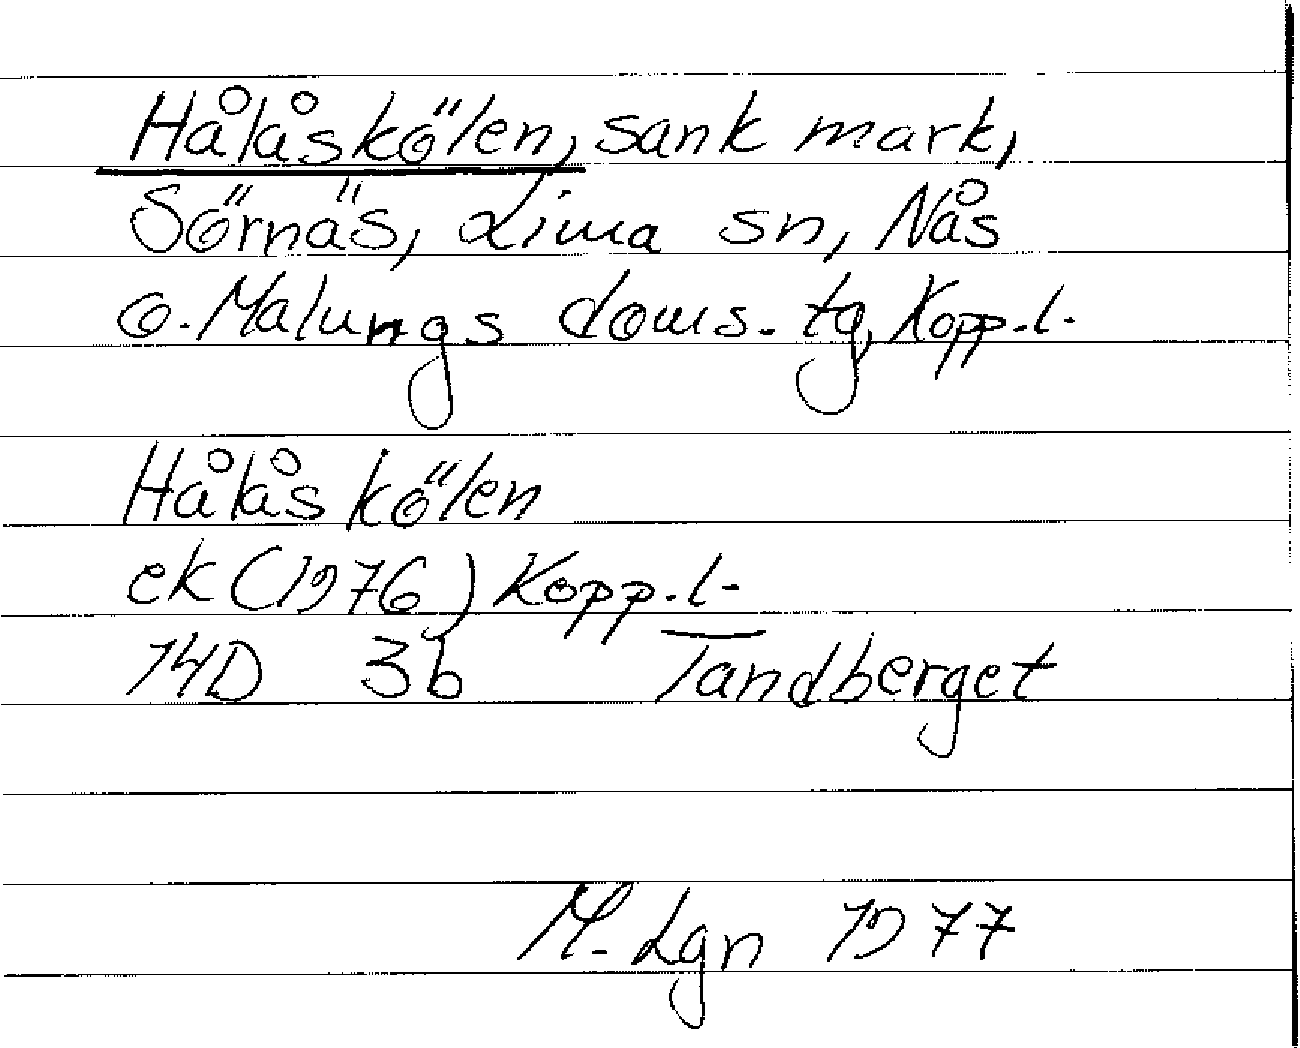 Hålåskölen, sank mark,
Sörnäs, Lima sn, Nås
o. Malungs doms. tg, Kopp.l.
Hålåskölen
ek (1976) Kopp.l.
14D 3b Tandberget
M. Lgn 1977